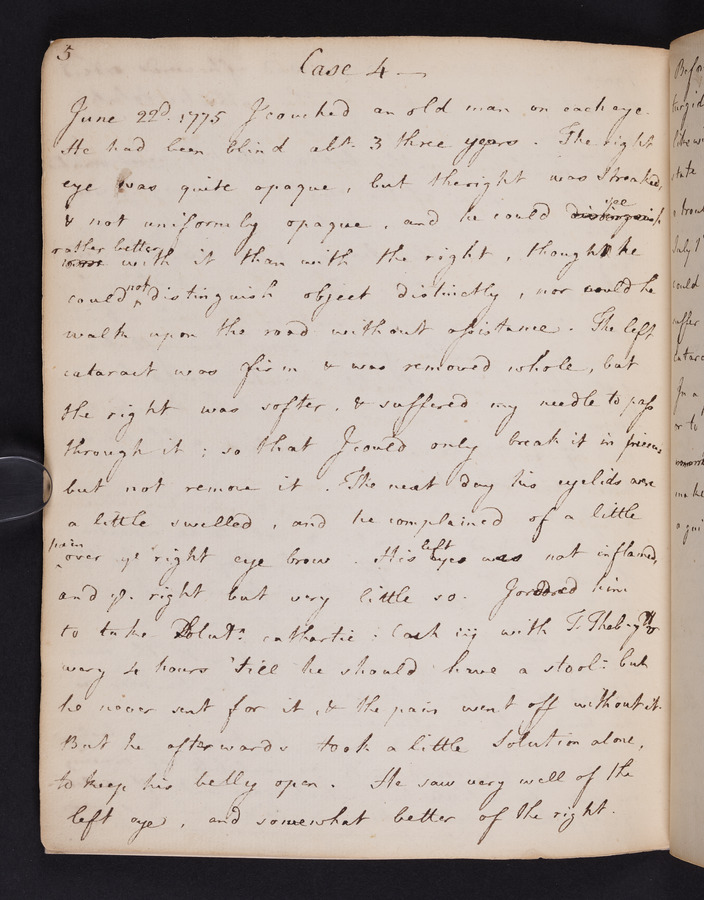 5
Case 4 —
June 22d. 1775 I couched an old man on each eye.
He had been blind abt. 3 three years. The right
eye was quite opaque, but the right was streaked,
& not uniformly opaque, and he could distinguish see
rather better with it than with the right, though he
could not distinguish object distinctly, nor would he
walk upon the road without assistance. The left
cataract was firm & was removed whole, but
the right was softer, & suffered my needle to pass
through it; so that I could only break it in pieces
but not remove it. The next day his eyelids were
a little swelled, and he complained of a little
pain over ye right eye brow. His left eye was not inflamed,
and ye. right but very little so. I ordered him
to take Solut: cathartic: Coch iij with T. Thebaic
every 4 hours 'till he should have a stool: but
he never sent for it, & the pain went off without it.
But he afterwards took a little Solution alone,
to keep his belly open. He saw very well of the
left eye, and somewhat better of the right.